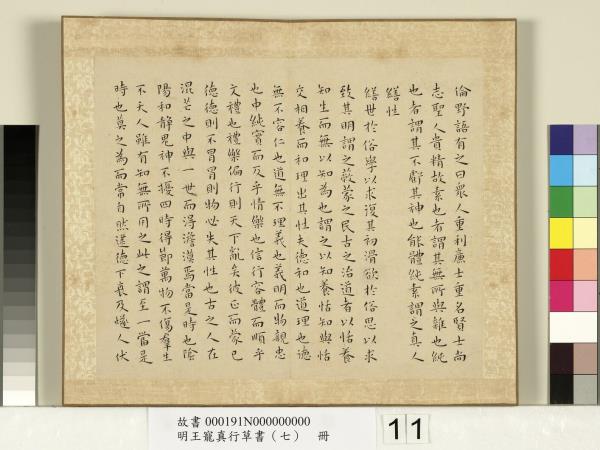 倫野語有之曰衆人重利廉士重名賢士尚
志聖人貴精故素也者謂其無所與雜也純
也者謂其不虧其神也能體純素謂之真人
繕性
繕世於俗學以求復其初滑欲於俗思以求
致其明謂之蔽蒙之民古之治道者以恬養
知生而無以知為也謂之以知養恬知與恬
交相養而和理出其性夫德和也道理也德
無不容仁也道無不理義也義明而物親忠
也中純實而反乎情樂也信行容體而順乎
文禮也禮樂偏行則天下亂矣彼正而蒙己
德德則不冒冒則物必失其性也古之人在
混芒之中與一世而得澹漠焉當是時也陰
陽和靜鬼神不擾四時得節萬物不傷羣生
不夭人雖有知無所用之此之謂至一當是
時也莫之為而常自然逮德下衰及燧人伏
故書 000191N000000000
明王寵真行草書（七） 冊
11